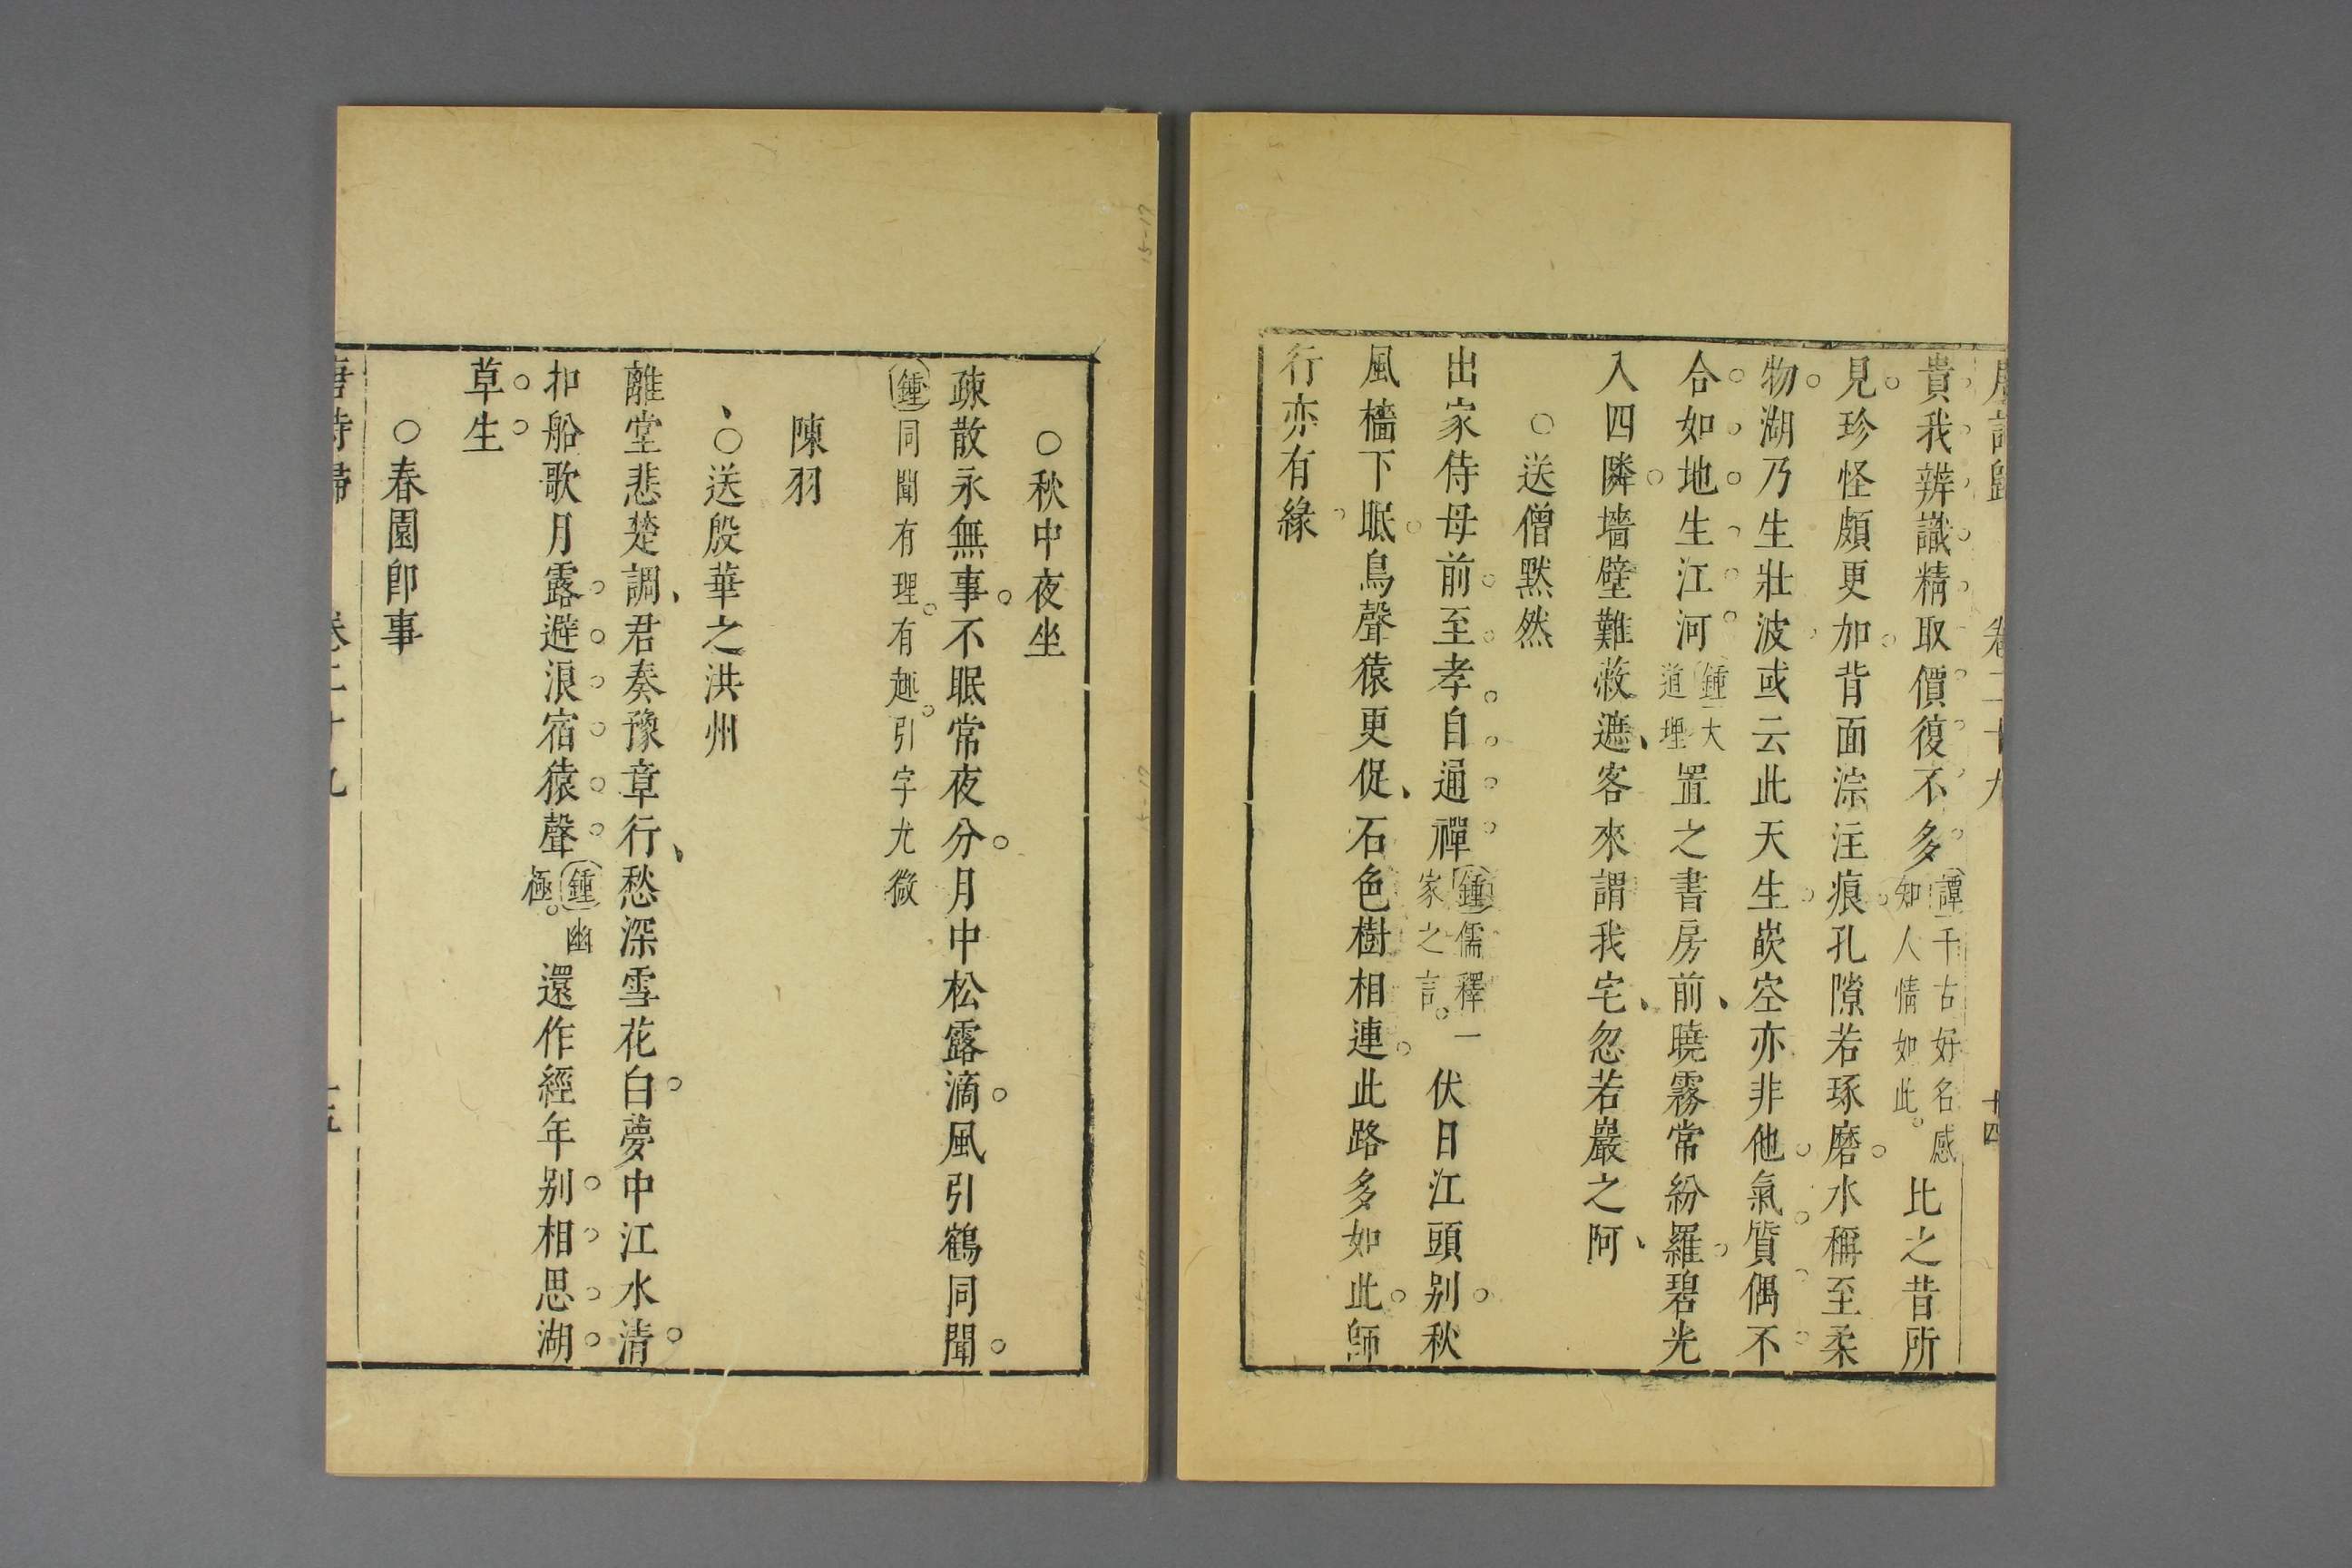 唐詩歸 卷二十九 十四
貴我辨識精取價復不多譚千古好名感知人情如此比之昔所
見珍怪頗更加背面淙注痕孔隙若琢磨水稱至柔
物湖乃生壯波或云此天生嵌空亦非他氣質偶不
合如地生江河鍾大道理置之書房前曉霧常紛羅碧光
入四隣墻壁難蔽遮客來謂我宅忽若巖之阿
○送僧默然
出家侍母前至孝自通禪鍾儒釋一家之言伏日江頭别秋
風檣下眠鳥聲猿更促石色樹相連此路多如此師
行亦有緣
○秋中夜坐
疎散永無事不眠常夜分月中松露滴風引鶴同聞
鍾同聞有理有趣引字尤微
陳羽
○送殷華之洪州
離堂悲楚調君奏豫章行愁深雪花白夢中江水清
扣船歌月露避浪宿猿聲鍾幽極還作經年别相思湖
草生
○春園卽事
唐詩歸 卷二十九 十五